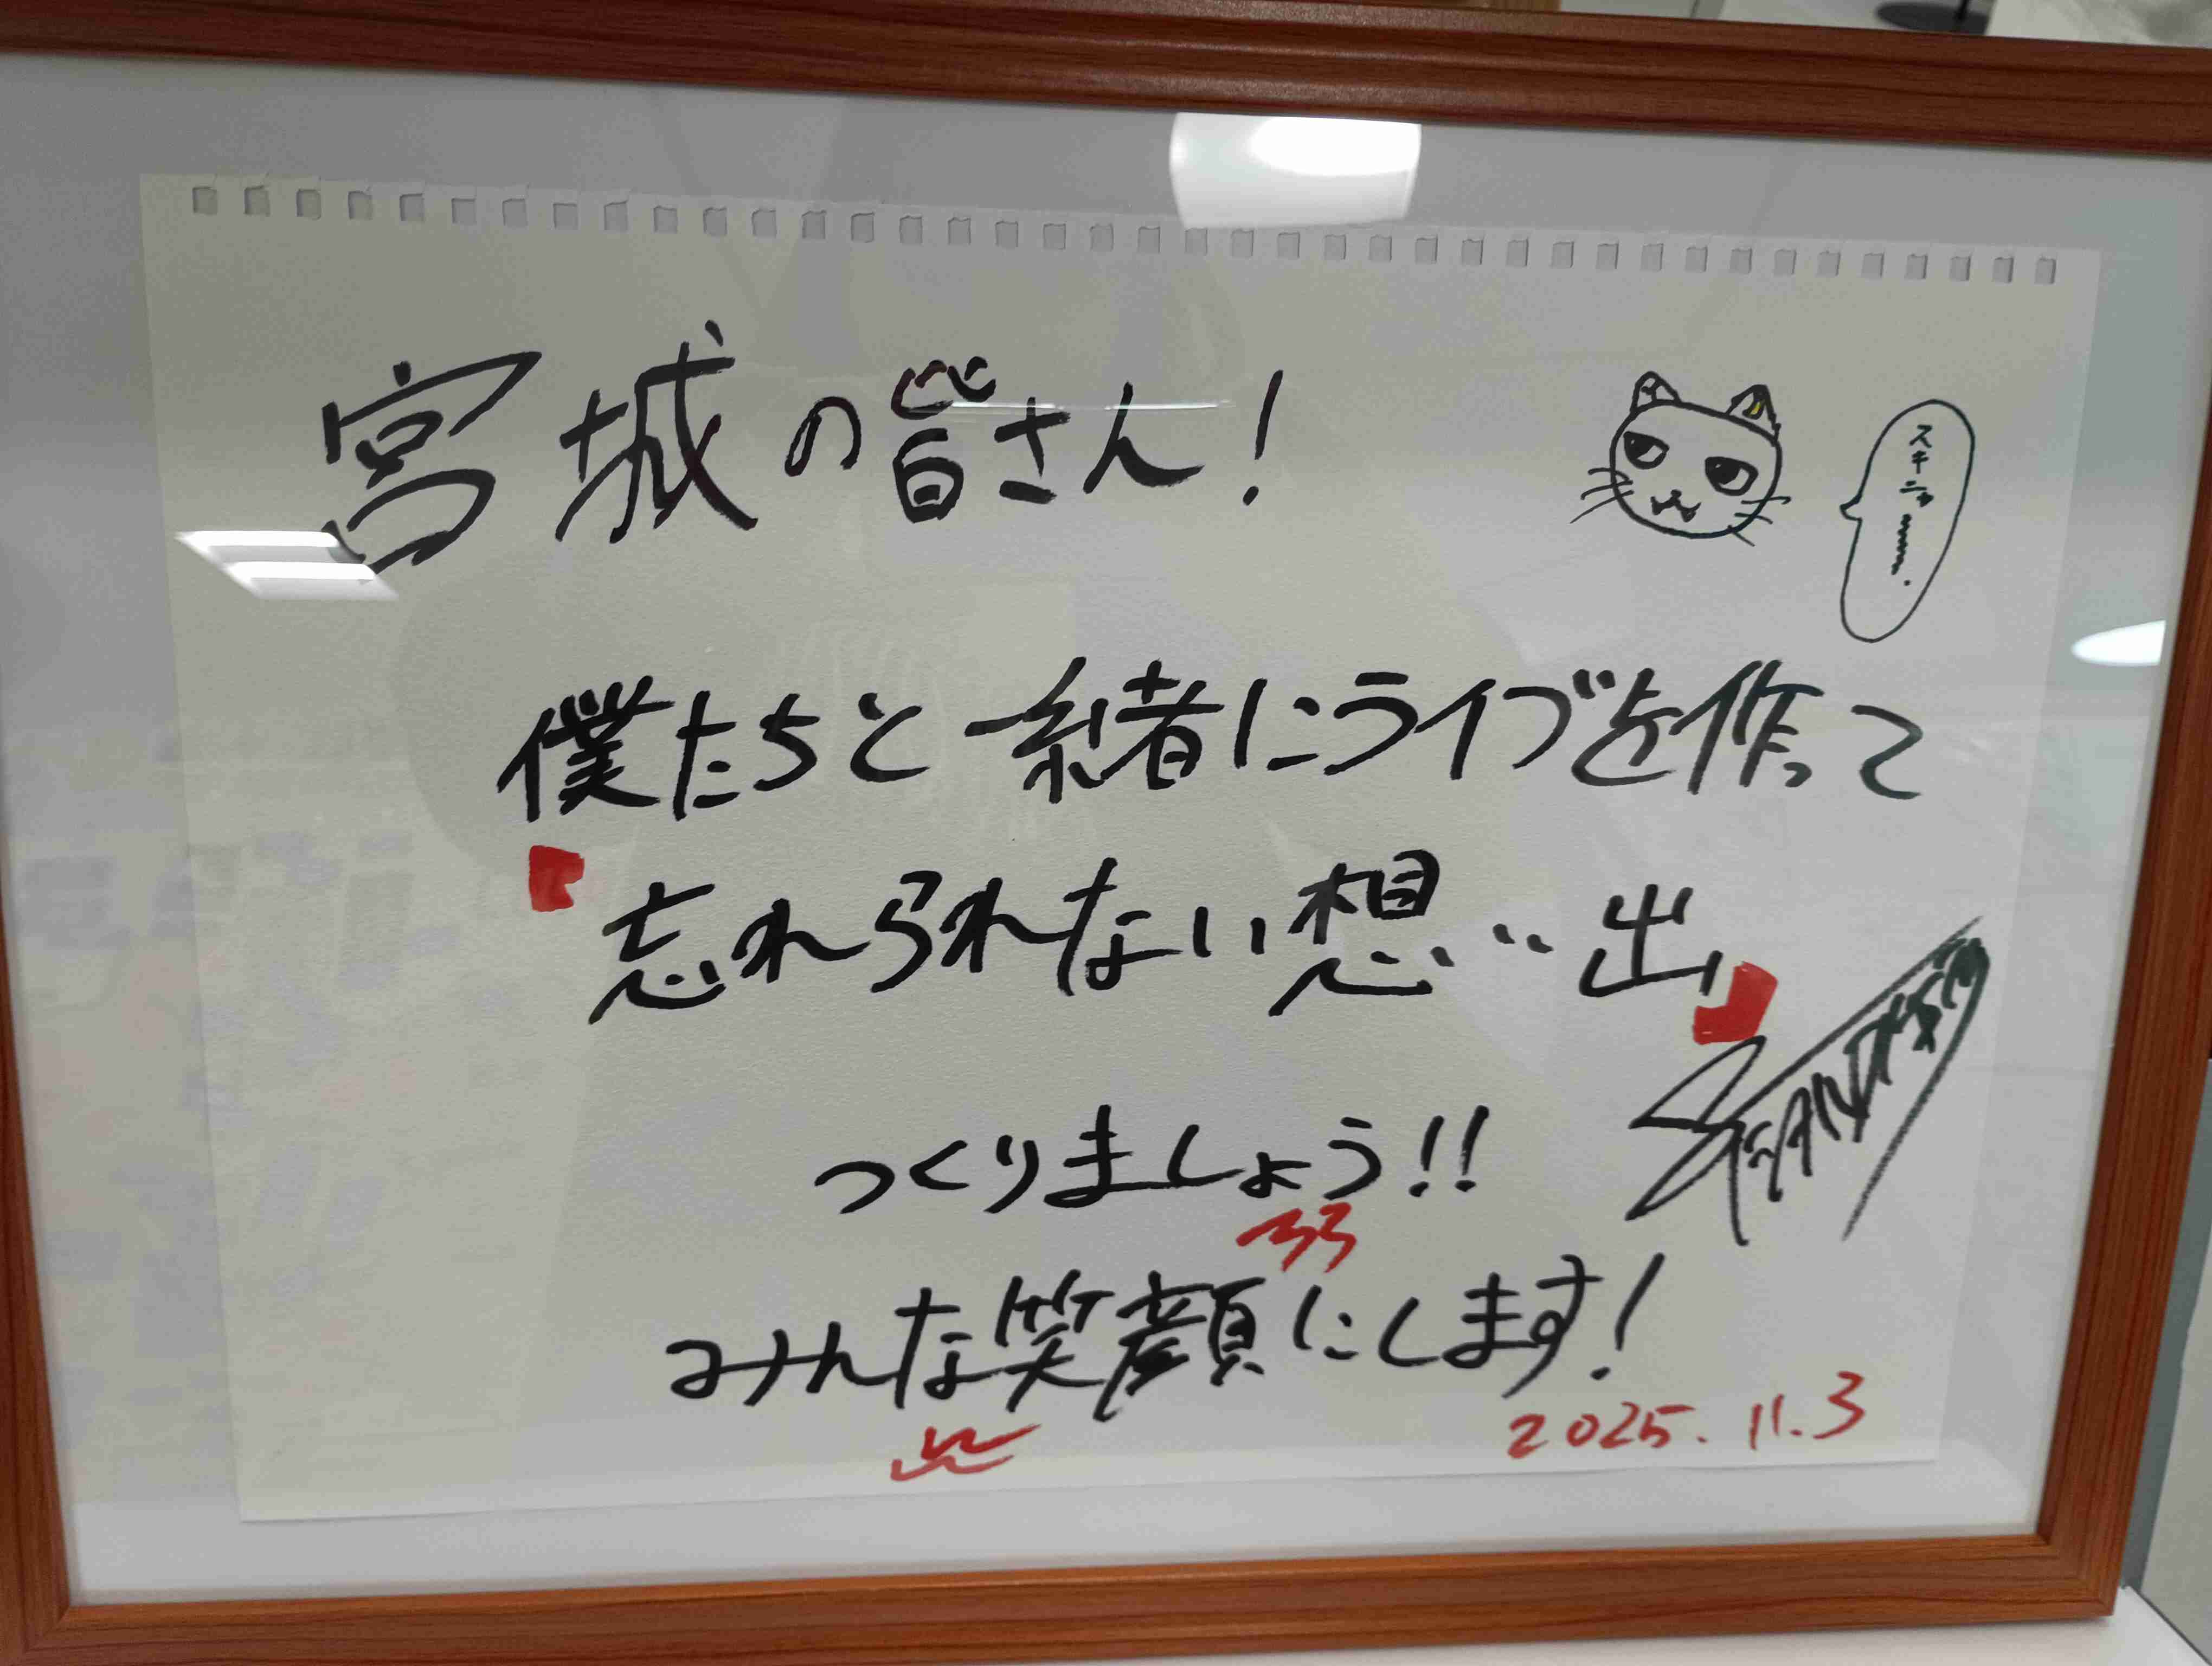 宮城の皆さん!
スキニャー
僕たちと一緒にライブを作って
「忘れられない想い出」
つくりましょう!!
みんな笑顔にします!
2025.11.3